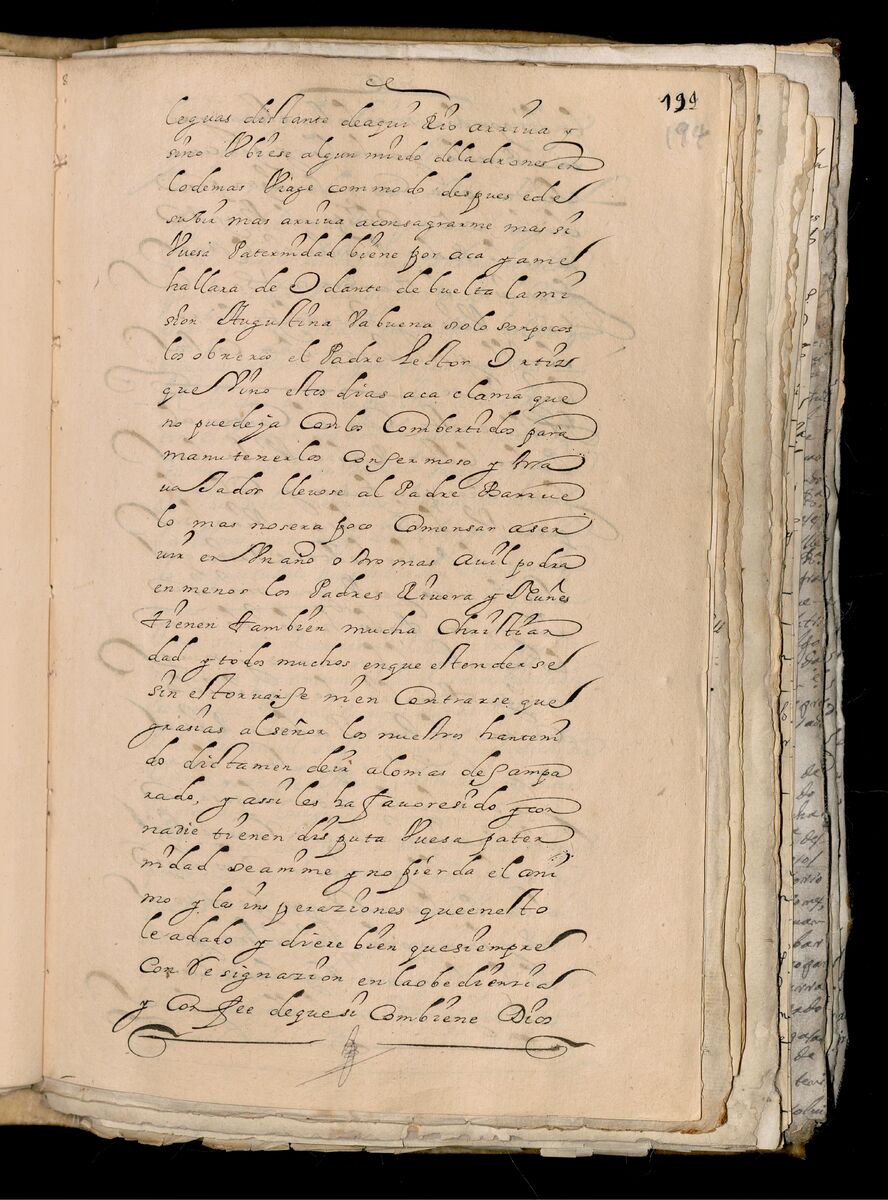 199
194
leguas distante deaqui Rio arriva y
sino Vbiese algun miedo deladrones en
lodemas Viage commodo despues e del
subir mas arriva aconsagrarme mas si
Vuesa Paternidad biene por aca ya me
hallara de Odante de buelta la mi
sion Augustina Va buena solo sonpocos
los obreros el Padre Lector Ortiz
que Vino estos dias aca clama que
no puede ya Conlos Combertidos para
manutenerlos Con fermoso y tra
vajador llevose al Padre Barrue
lo mas nosera poco Comensar a ser
vir en Vn año otro mas avil podra
en menos los Padres Rivera y Nuñes
tienen tambien mucha Christian
dad y todos muchos enque estenderse
sin estorvarse ni en Contrarse que
grasias alseñor los nuestros hanteni
do dictamen deir alomas desampa
rado, y assi les ha favoresido y con
nadie tienen disputa Vuesa pater
nidad se anime y no pierda el ani
mo y las ins peraziones queenesto
le adado y
bien quesiempre
Con Resignazion en laobediensia
y Con fee dequesi Combiene Dios